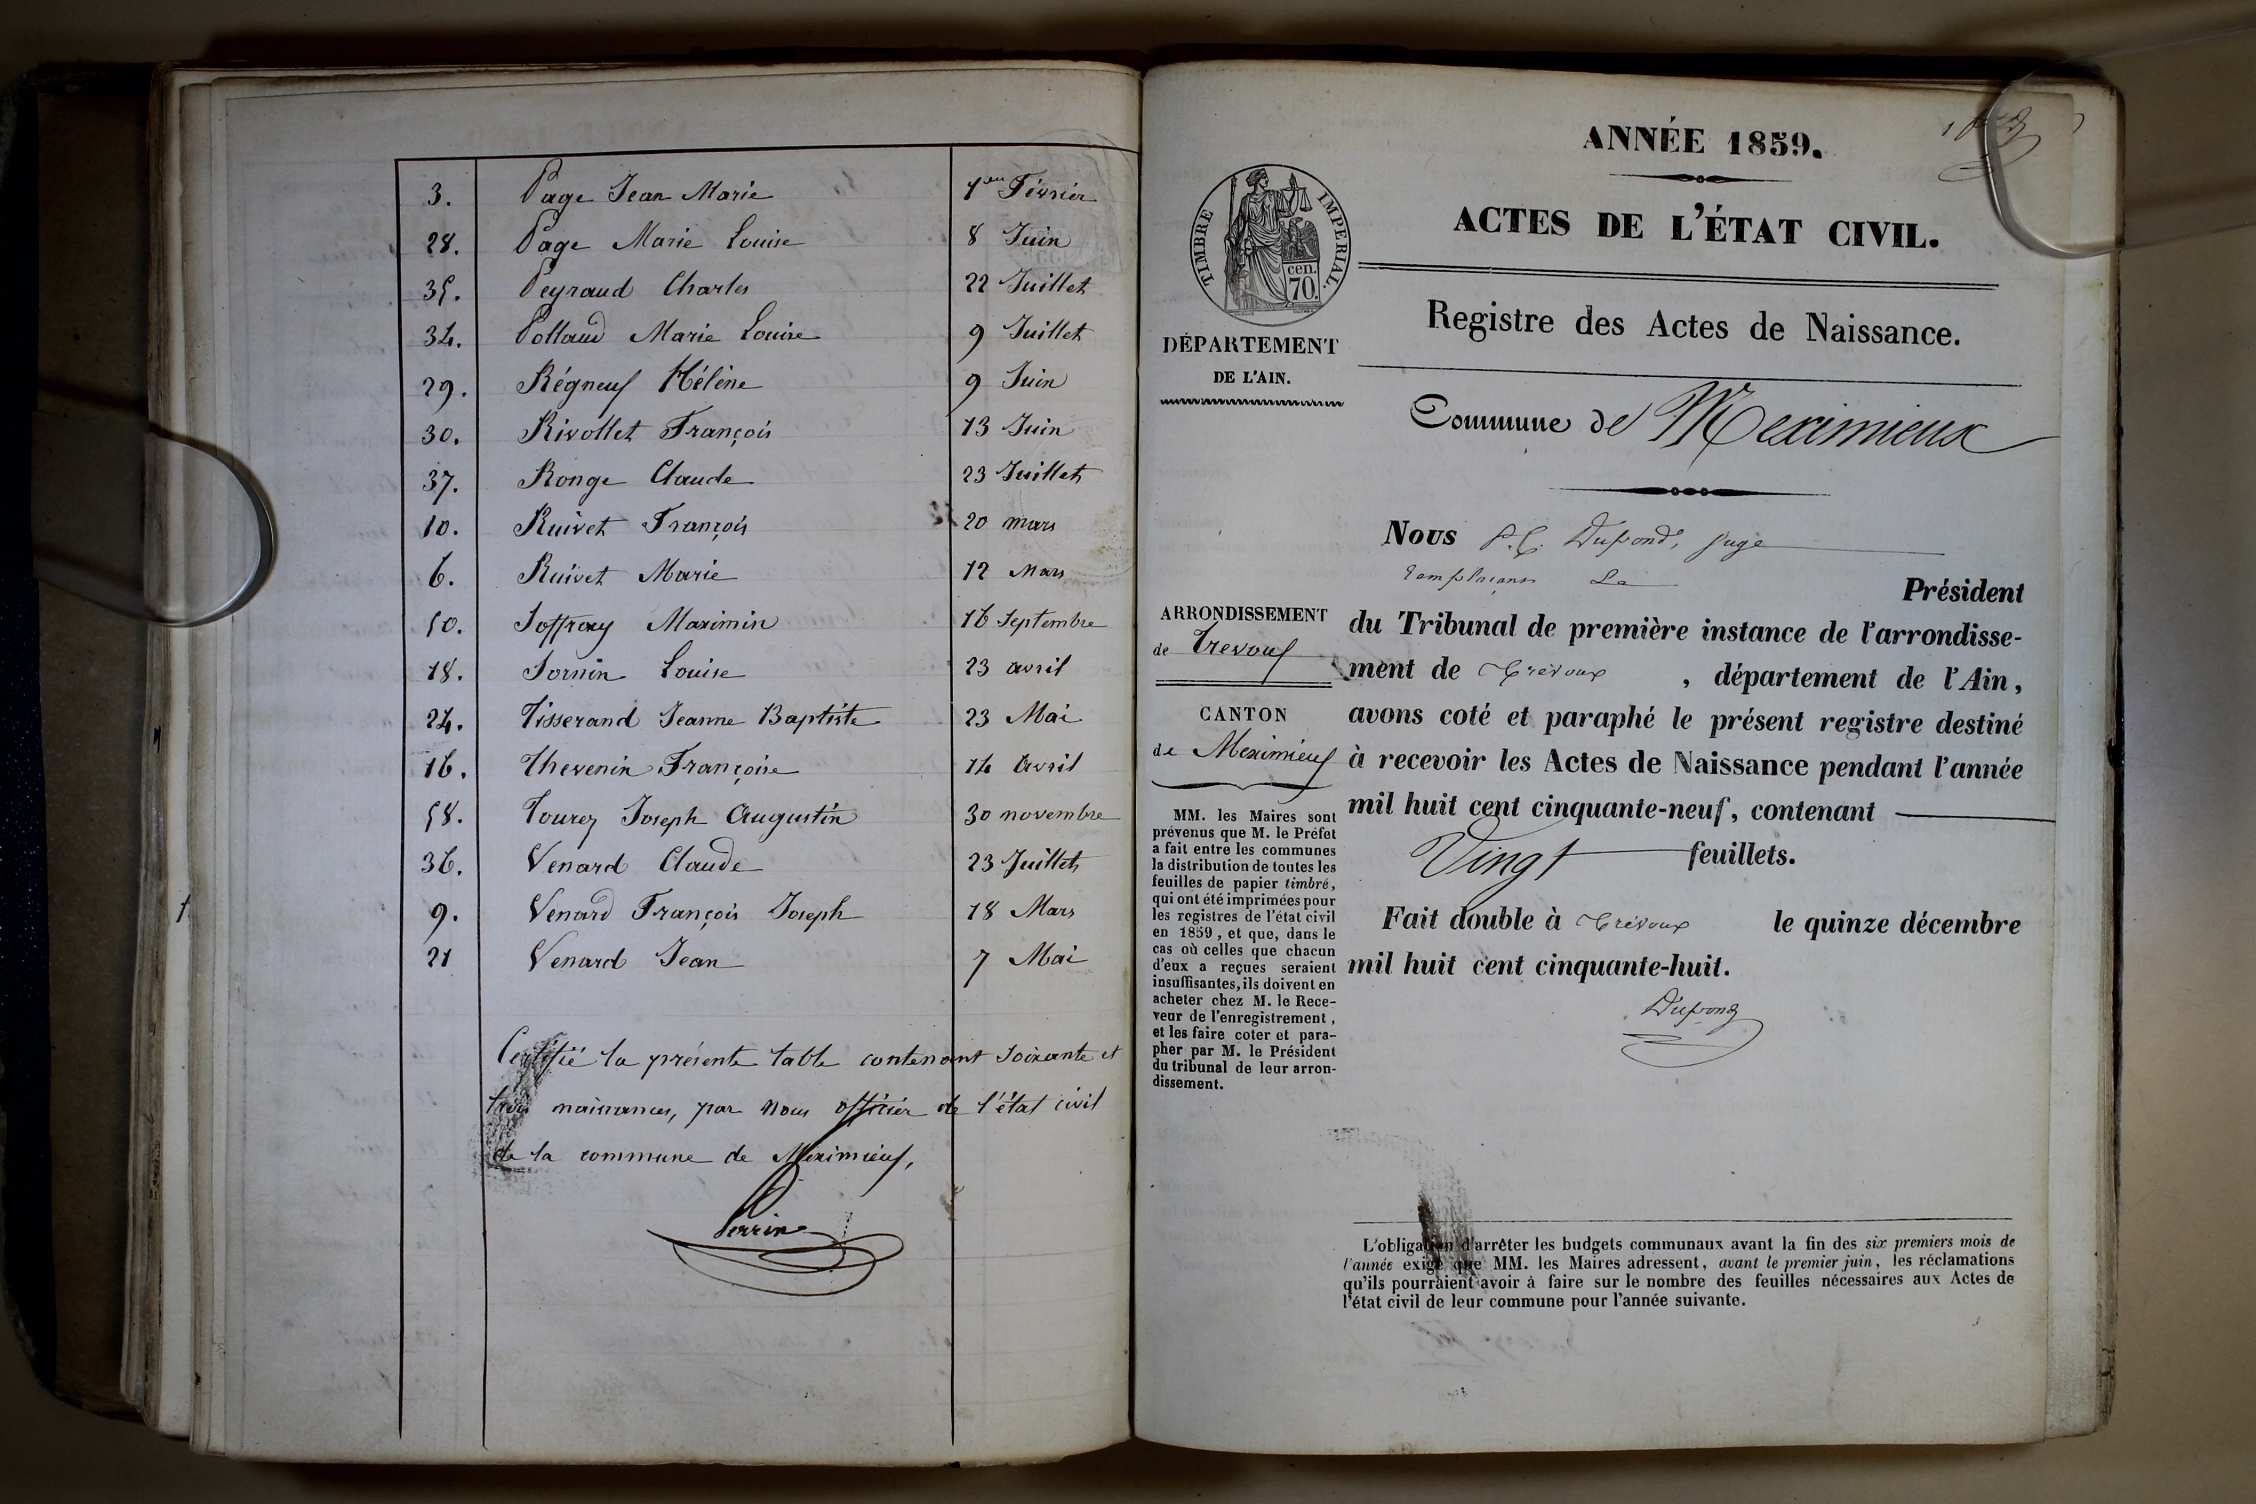 3. Page Jean Marie 1er Février
28. Page Marie Louise 8 Juin
35. Peyraud Charles 22 Juillet
34. Pollaud Marie Louise 9 Juillet
29. Régneux Hélène 9 Juin
30. Rivollet François 13 Juin
37. Ronge Claude 23 Juillet
10. Ruivet François 20 mars
6. Ruivet Marie 12 Mars
50. Soffray Maximin 16 Septembre
18. Sornin Louise 23 avril
24. Tisserand Jeanne Baptiste 23 Mai
16. Thevenin Françoise 14 Avril
58. Tourez Joseph Augustin 30 novembre
36. Venard Claude 23 Juillet
9. Venard François Joseph 18 Mars
21 Venard Jean 7 Mai
Certifié la présente table contenant soixante et
trois naissances, par nous officier de l'état civil
de la commune de Meximieux,
Perrin
ANNÉE 1859.
ACTES DE L'ÉTAT CIVIL.
TIMBRE IMPERIAL.
cen.
70.
Registre des Actes de Naissance.
DÉPARTEMENT
DE L'AIN.
Commune de Meximieux
Nous P. C. Dupond, juge
remplaçant Le
Président
du Tribunal de première instance de l'arrondisse-
ment de Trévoux , département de l'Ain,
avons coté et paraphé le présent registre destiné
à recevoir les Actes de Naissance pendant l'année
mil huit cent cinquante-neuf, contenant
Vingt feuillets.
Fait double à Trévoux le quinze décembre
mil huit cent cinquante-huit.
Dupond
ARRONDISSEMENT
de Trevoux
CANTON
de Meximieux
MM. les Maires sont
prévenus que M. le Préfet
a fait entre les communes
la distribution de toutes les
feuilles de papier timbré,
qui ont été imprimées pour
les registres de l'état civil
en 1859, et que, dans le
cas où celles que chacun
d'eux a reçues seraient
insuffisantes, ils doivent en
acheter chez M. le Rece-
veur de l'enregistrement,
et les faire coter et para-
pher par M. le Président
du tribunal de leur arron-
dissement.
L'obligation d'arrêter les budgets communaux avant la fin des six premiers mois de
l'année exige que MM. les Maires adressent, avant le premier juin, les réclamations
qu'ils pourraient avoir à faire sur le nombre des feuilles nécessaires aux Actes de
l'état civil de leur commune pour l'année suivante.